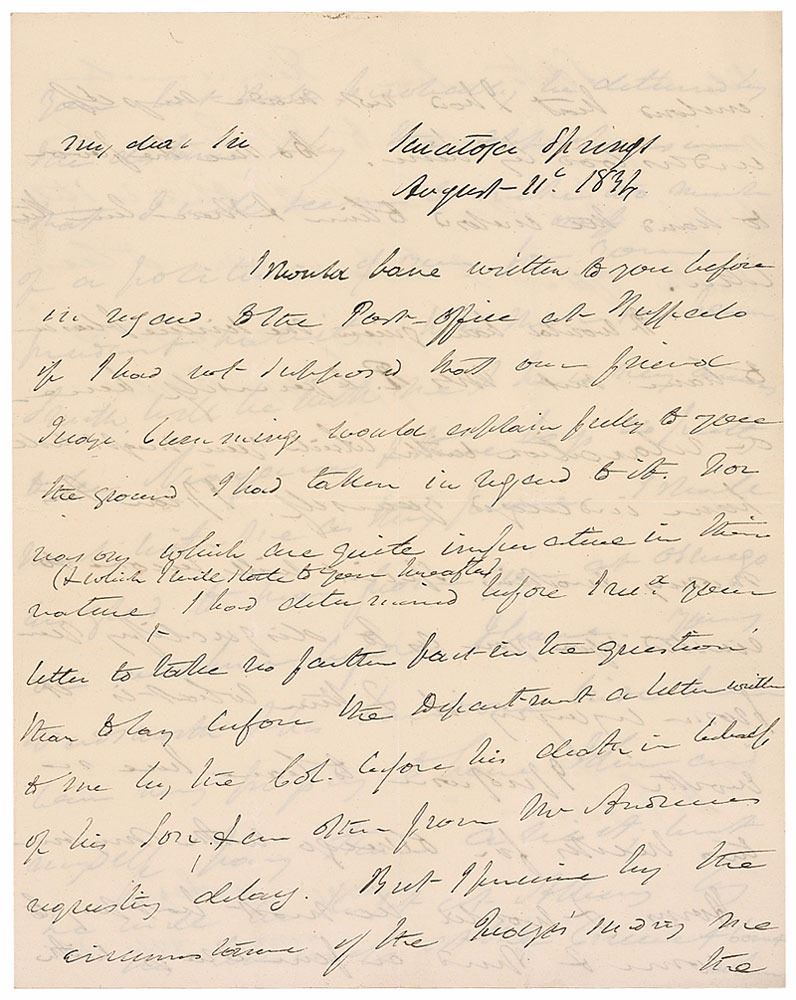 My dear Sir Saratoga Springs
August 11t. 1834.
I would have written to you before
in regard to the Post-office at Buffalo
if I had not supposed that our friend
Judge would explain fully to you
the ground I had taken in regard to it. For
reasons which are quite imperative in their
(& which I will state to you hereafter)
nature I had determined before I recd. your
letter to take no further part in the question
than to lay before the Department a letter written
to me by the Col. before his death in behalf
of his Son, & an other from Mr Andrews
requesting delay. But I presume by the
circumstance of the Judge's me
the